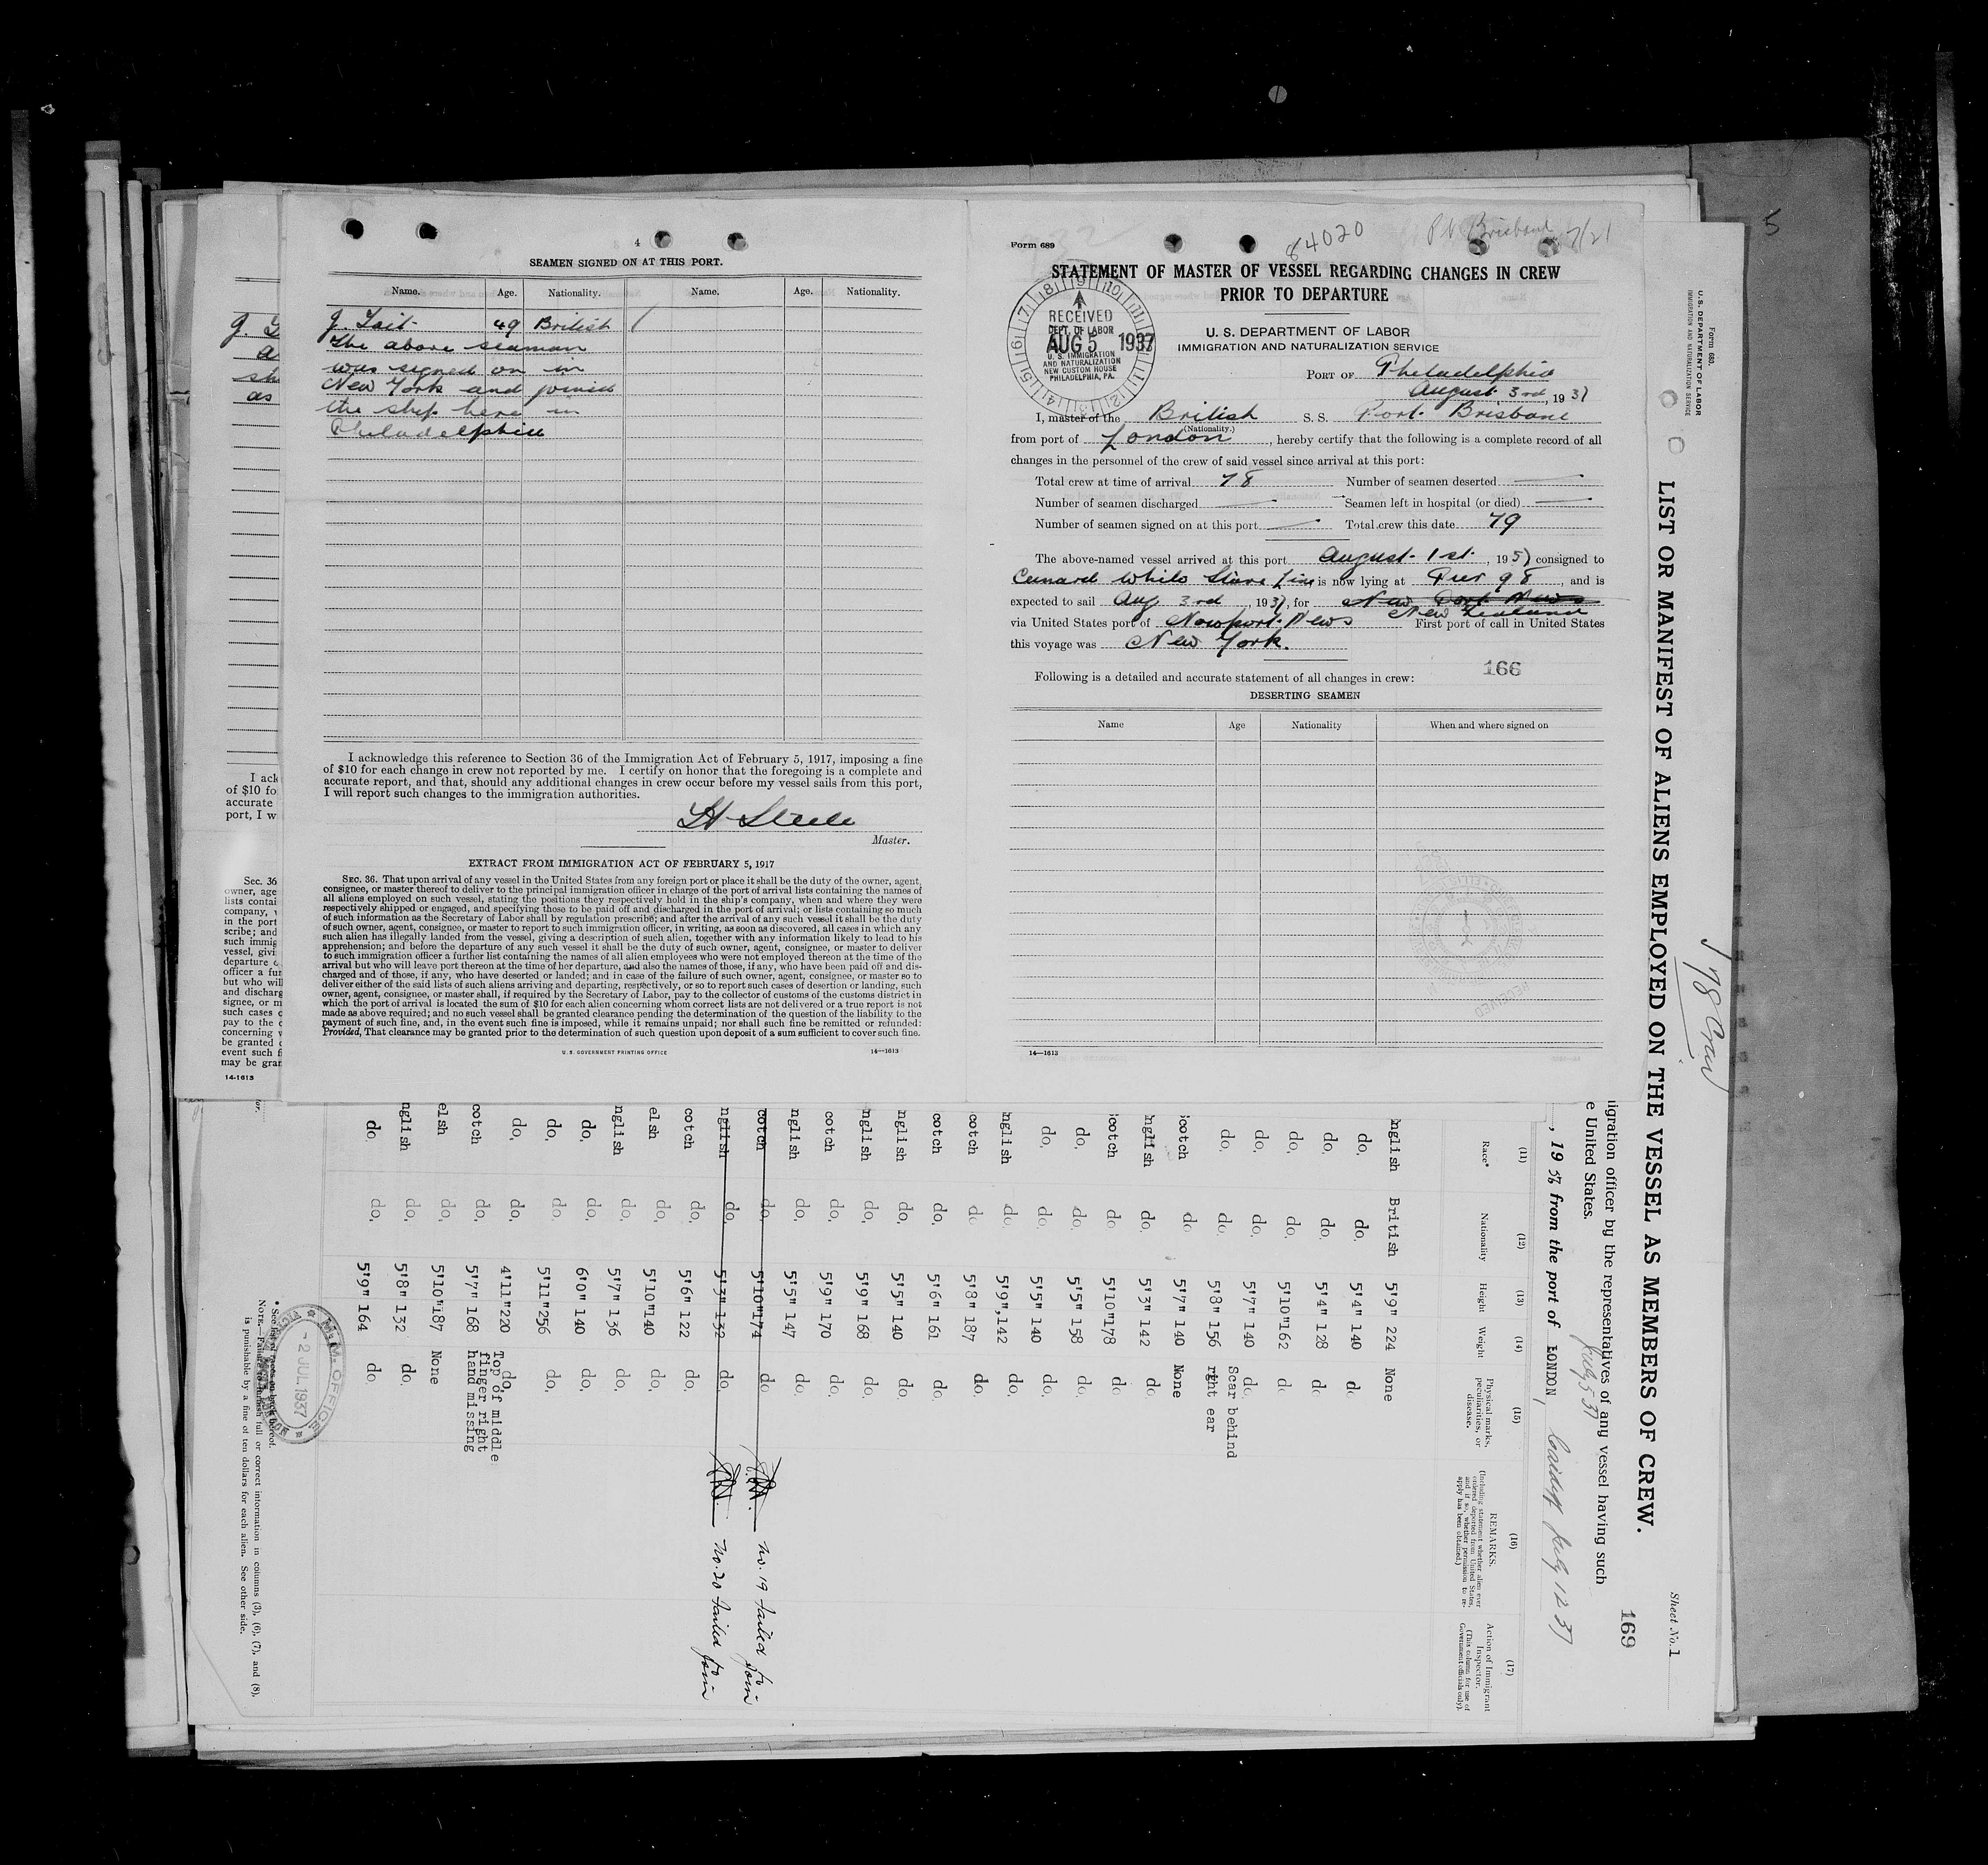 4
SEAMEN SIGNED ON AT THIS PORT.
Name. Age. Nationality. Name. Age. Nationality.
J. Tait 49 British /
The above seaman
was signed on in
New York and joined
the ship here in
Philadelphia
I acknowledge this reference to Section 36 of the Immigration Act of February 5, 1917, imposing a fine
of $10 for each change in crew not reported by me. I certify on honor that the foregoing is a complete and
accurate report, and that, should any additional changes in crew occur before my vessel sails from this port,
I will report such changes to the immigration authorities.
H Steele
Master.
EXTRACT FROM IMMIGRATION ACT OF FEBRUARY 5, 1917
SEC. 36. That upon arrival of any vessel in the United States from any foreign port or place it shall be the duty of the owner, agent,
consignee, or master thereof to deliver to the principal immigration officer in charge of the port of arrival lists containing the names of
all aliens employed on such vessel, stating the positions they respectively hold in the ship's company, when and where they were
respectively shipped or engaged, and specifying those to be paid off and discharged in the port of arrival; or lists containing so much
of such information as the Secretary of Labor shall by regulation prescribe; and after the arrival of any such vessel it shall be the duty
of such owner, agent, consignee, or master to report to such immigration officer, in writing, as soon as discovered, all cases in which any
such alien has illegally landed from the vessel, giving a description of such alien, together with any information likely to lead to his
apprehension; and before the departure of any such vessel it shall be the duty of such owner, agent, consignee, or master to deliver
to such immigration officer a further list containing the names of all alien employees who were not employed thereon at the time of the
arrival but who will leave port thereon at the time of her departure, and also the names of those, if any, who have been paid off and dis-
charged and of those, if any, who have deserted or landed; and in case of the failure of such owner, agent, consignee, or master so to
deliver either of the said lists of such aliens arriving and departing, respectively, or so to report such cases of desertion or landing, such
owner, agent, consignee, or master shall, if required by the Secretary of Labor, pay to the collector of customs of the customs district in
which the port of arrival is located the sum of $10 for each alien concerning whom correct lists are not delivered or a true report is not
made as above required; and no such vessel shall be granted clearance pending the determination of the question of the liability to the
payment of such fine, and, in the event such fine is imposed, while it remains unpaid; nor shall such fine be remitted or refunded:
Provided, That clearance may be granted prior to the determination of such question upon deposit of a sum sufficient to cover such fine.
U. S. GOVERNMENT PRINTING OFFICE 14—1613
I ack
of $10 fo
accurate
port, I w
Sec. 36
owner, age
lists contai
company, v
in the port
scribe; and
such immig
vessel, givi
departure o
officer a fur
but who will
and discharg
signee, or m
such cases o
pay to the c
concerning v
be granted c
event such f
may be gran
14-1613
Form 689
84020
Pt Brisbane 7/21
STATEMENT OF MASTER OF VESSEL REGARDING CHANGES IN CREW
PRIOR TO DEPARTURE
U. S. DEPARTMENT OF LABOR
IMMIGRATION AND NATURALIZATION SERVICE
RECEIVED
DEPT. OF LABOR
AUG 5 1937
U. S. IMMIGRATION
AND NATURALIZATION
NEW CUSTOM HOUSE
PHILADELPHIA, PA.
PORT OF Philadelphia
August 3rd, 1937
I, master of the British S. S. Port Brisbane
(Nationality.)
from port of London, hereby certify that the following is a complete record of all
changes in the personnel of the crew of said vessel since arrival at this port:
Total crew at time of arrival 78 Number of seamen deserted —
Number of seamen discharged — Seamen left in hospital (or died) —
Number of seamen signed on at this port — Total crew this date 79
The above-named vessel arrived at this port August 1st, 1937 consigned to
Cunard White Star Line is now lying at Pier 98, and is
expected to sail Aug 3rd, 1937, for New Port News
New Zealand
via United States port of Newport News First port of call in United States
this voyage was New York.
166
Following is a detailed and accurate statement of all changes in crew:
DESERTING SEAMEN
Name Age Nationality When and where signed on
14—1613
5
Form 680.
U. S. DEPARTMENT OF LABOR
IMMIGRATION AND NATURALIZATION SERVICE
Sheet No. 1
LIST OR MANIFEST OF ALIENS EMPLOYED ON THE VESSEL AS MEMBERS OF CREW.
78 Crew
169
igration officer by the representatives of any vessel having such
e United States.
July 5 37
, 1937 from the port of LONDON, Cardiff July 12 37
(11) (12) (13) (14) (15) (16) (17)
Race* Nationality Height Weight Physical marks, peculiarities, or disease. REMARKS. (Including statement whether alien ever ordered deported from United States, and if so, whether permission to reapply has been obtained.) Action of Immigrant Inspector. (This column for use of Government officials only).
nglish British 5'9" 224 None
do. do. 5'4" 140 do
do, do. 5'4" 128 do
do, do, 5'10" 162 do
do, do, 5'7" 140 do.
do, do, 5'8" 156 Scar behind right ear
cotch do 5'7" 140 None
nglish do. 5'3" 142 do.
cotch do 5'10" 178 do
do, do. 5'5" 158 do.
do, do, 5'5" 140 do.
nglish do. 5'9", 142 do.
cotch do 5'8" 187 do.
cotch do, 5'6" 161 do.
nglish do, 5'5" 140 do.
nglish do, 5'9" 168 do.
cotch do, 5'9" 170 do.
nglish do, 5'5" 147 do.
cotch do, 5'10" 174 do No. 19 failed to join
nglish do, 5'3" 132 do. No. 20 failed to join
cotch do, 5'6" 122 do,
elsh do, 5'10" 140 do,
nglish do, 5'7" 136 do,
do, do, 6'0" 140 do,
do, do, 5'11" 256 do,
do, do, 4'11" 220 do,
cotch do, 5'7" 168 Top of middle finger right hand missing
elsh do, 5'10" 187 None
nglish do, 5'8" 132 do.
do. do, 5'9" 164 do.
M.M. OFFICE
-2 JUL 1937
* See list of races on back hereof.
NOTE.—Failure to furnish full or correct information in columns (3), (6), (7), and (8),
is punishable by a fine of ten dollars for each alien. See other side.